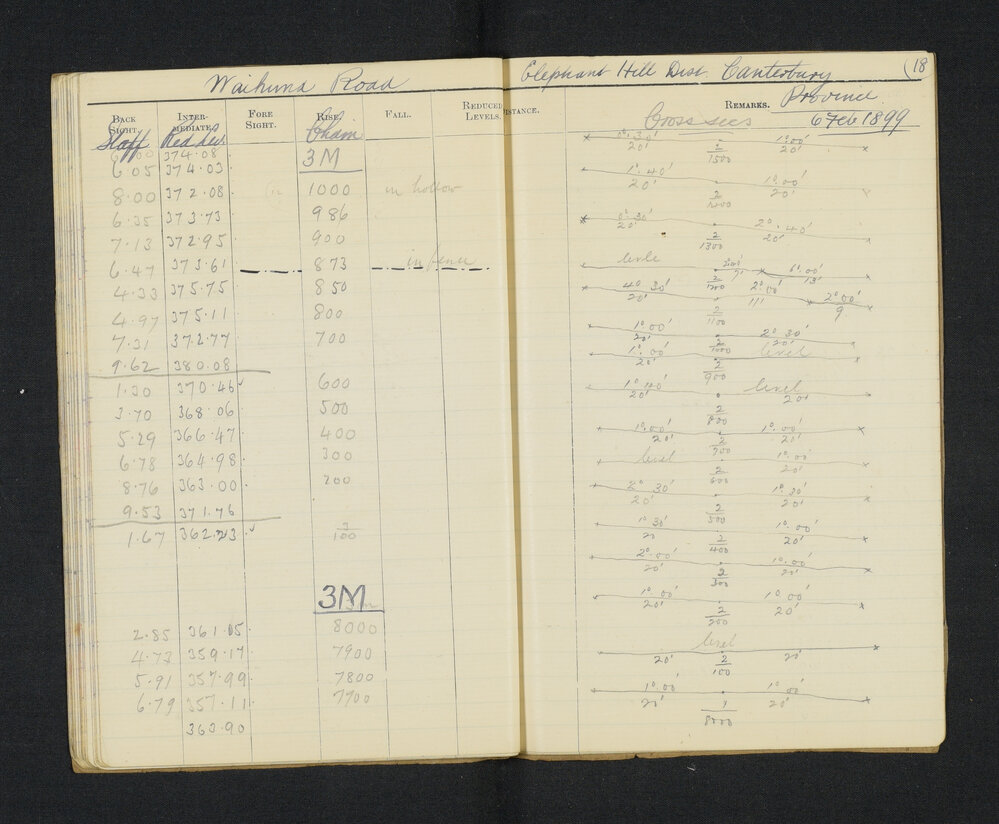 Waihuna Road
BACK SIGHT. INTER- MEDIATE. FORE SIGHT. RISE. FALL. REDUCED LEVELS.
Staff Red Lev Chain
374.08
6.05 374.03 3M
8.00 372.08 1000 in hollow
6.35 373.73 986
7.13 372.95 900
6.47 373.61 873 in fence
4.33 375.75 850
4.97 375.11 800
7.31 372.77 700
9.62 380.08
1.30 370.46 600
3.70 368.06 500
5.29 366.47 400
6.78 364.98 300
8.76 363.00 200
9.53 371.76
1.67 362.23 3/100
3M
2.85 361.05 8000
4.73 359.17 7900
5.91 357.99 7800
6.79 357.11 7700
363.90
Elephant Hill Dist. Canterbury (18
DISTANCE. REMARKS. Province
Cross secs 6 Feb 1899
0°.30' 1°.00'
20' 2/1500 20'
1°.40' 1°.00'
20' 20'
0°.30' 2°.40'
20' 2/1300 20'
level 6°.00'
9' 2/1200 13'
4° 30' 2°.00' 2°00'
20' 2/1100 11' 9
1°00' 2° 30'
20' 2/1000 20'
1°.00' level
20' 2/900
1° level
20' 2/800 20'
1°.00' 1°.00'
20' 2/700 20'
level 1°.00'
2/600 20'
2° 30' 1°.30'
20' 2/500 20'
1° 30' 1°.00'
20 2/400 20'
2°.00' 1°.00'
20' 2/300 20'
1°.00' 1°.00'
20' 2/200 20'
level
20' 2/100 20'
1°.00' 1°.00'
20' 1/8000 20'